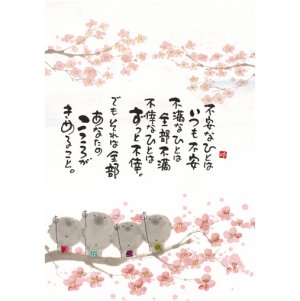 不安なひとは
いつも不安
不満なひとは
全部不満
不幸なひとは
ずっと不幸。
でもそれは全部
あなたの
こころが
きめること。